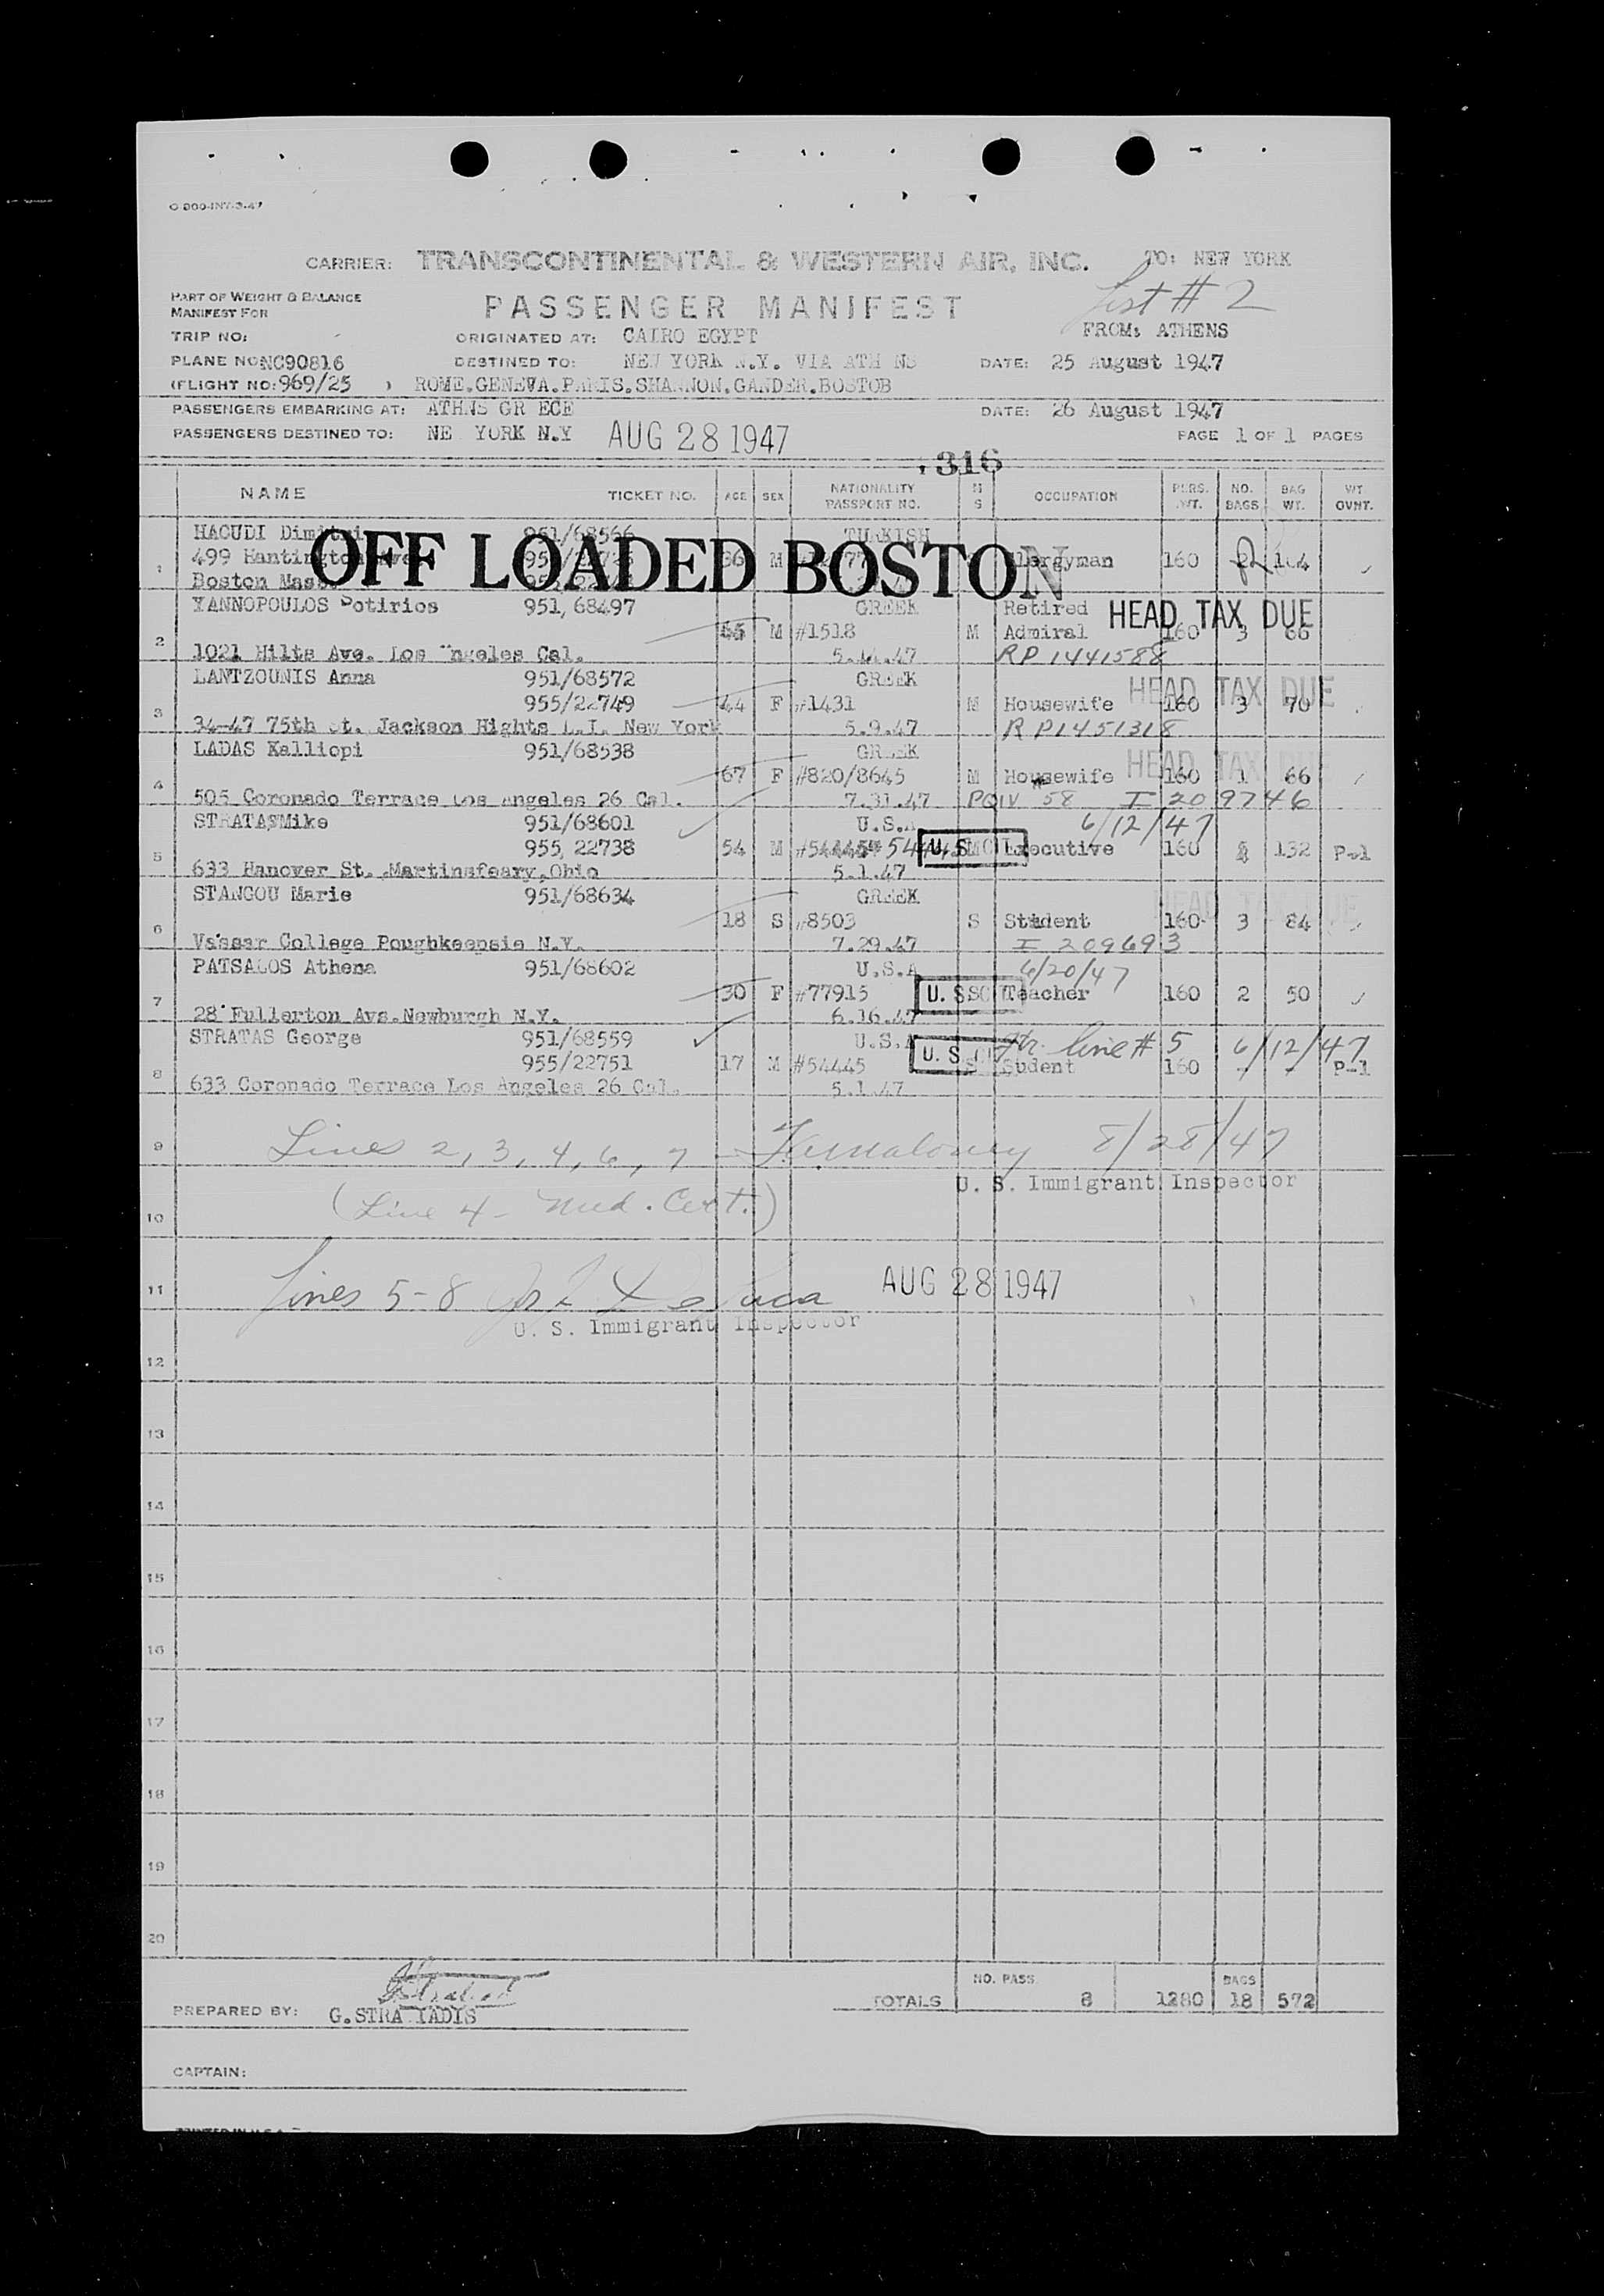 O-900-INT-3-47
CARRIER: TRANSCONTINENTAL & WESTERN AIR, INC. TO: NEW YORK
List # 2
PART OF WEIGHT & BALANCE
MANIFEST FOR
PASSENGER MANIFEST
TRIP NO: ORIGINATED AT: CAIRO EGYPT FROM: ATHENS
PLANE NO NC90816 DESTINED TO: NEW YORK N.Y. VIA ATH NS DATE: 25 August 1947
(FLIGHT NO: 969/25 ) ROME.GENEVA.PARIS.SHANNON.GANDER.BOSTOB
PASSENGERS EMBARKING AT: ATHNS GR ECE DATE: 26 August 1947
PASSENGERS DESTINED TO: NE YORK N.Y AUG 28 1947 PAGE 1 OF 1 PAGES
316
NAME TICKET NO. AGE SEX NATIONALITY PASSPORT NO. M S OCCUPATION PERS. WT. NO. BAGS BAG WT. WT. OVNT.
HAGUDI Dimitri 951/68566 TURKISH
OFF LOADED BOSTON
1 499 Hantington 66 M Clergyman 160
Boston Mass.
YANNOPOULOS Potirios 951, 68497 GREEK Retired HEAD TAX DUE
2 M #1518 M Admiral 160 3 66
1021 Hilts Ave. Los Angeles Cal. 47 RP 1441588
LANTZOUNIS Anna 951/68572 GREEK HEAD TAX DUE
3 955/22749 44 F #1431 M Housewife 160 3 70
34-47 75th st. Jackson Hights L.I. New York 5.9.47 R P1451318
LADAS Kalliopi 951/68538 GREEK HEAD TAX DUE
4 67 F #820/8645 M Housewife 160 1 66
505 Coronado Terrace Los Angeles 26 Cal. 7.31.47 PQIV 58 I 209746
STRATAS Mike 951/68601 U.S.A 6/12/47
5 955, 22738 54 M 54445 U.S. M Executive 160 132 P-1
633 Hanover St. Martinsfeary,Ohio 5.1.47
STANGOU Marie 951/68634 GREEK HEAD TAX DUE
6 18 S #8503 S Student 160 3 84
Vassar College Poughkeepsie N.Y. 7.29.47 I 209693
PATSALOS Athena 951/68602 U.S.A 6/20/47
7 30 F #77915 U.S. S Teacher 160 2 50
28 Fullerton Ave.Newburgh N.Y. 6.16.47
STRATAS George 951/68559 U.S.A line # 5 6/12/47
8 955/22751 17 M #54445 U.S. S Sudent 160 - - P-1
633 Coronado Terrace Los Angeles 26 Cal. 5.1.47
9 Lines 2, 3, 4, 6, 7 - 8/28/47
U. S. Immigrant Inspector
10 (Line 4 - Med. Cert.)
11 Lines 5-8 AUG 28 1947
U. S. Immigrant Inspector
12
13
14
15
16
17
18
19
20
NO. PASS. BAGS
TOTALS 8 1280 18 572
PREPARED BY: G.STRA TADIS
CAPTAIN:
PRINTED IN U.S.A.